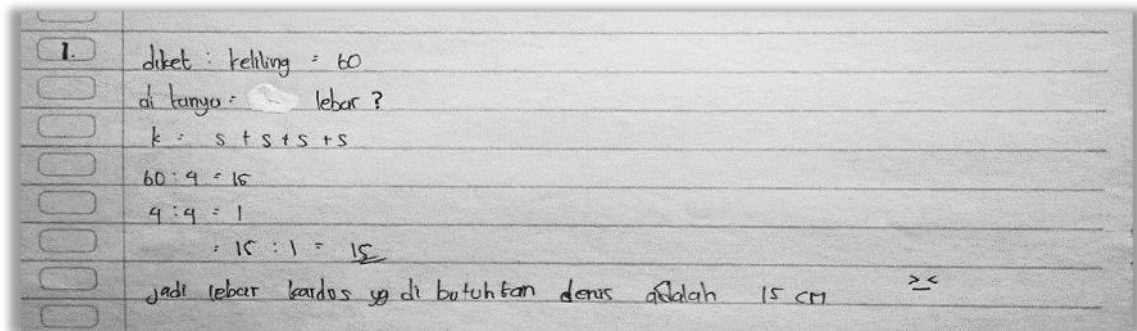 1. diket : keliling = 60
di tanya = lebar ?
k = s + s + s + s
60 : 4 = 15
4 : 4 = 1
= 15 : 1 = 15
jadi lebar kardus yg di butuhkan denis adalah 15 cm >_<